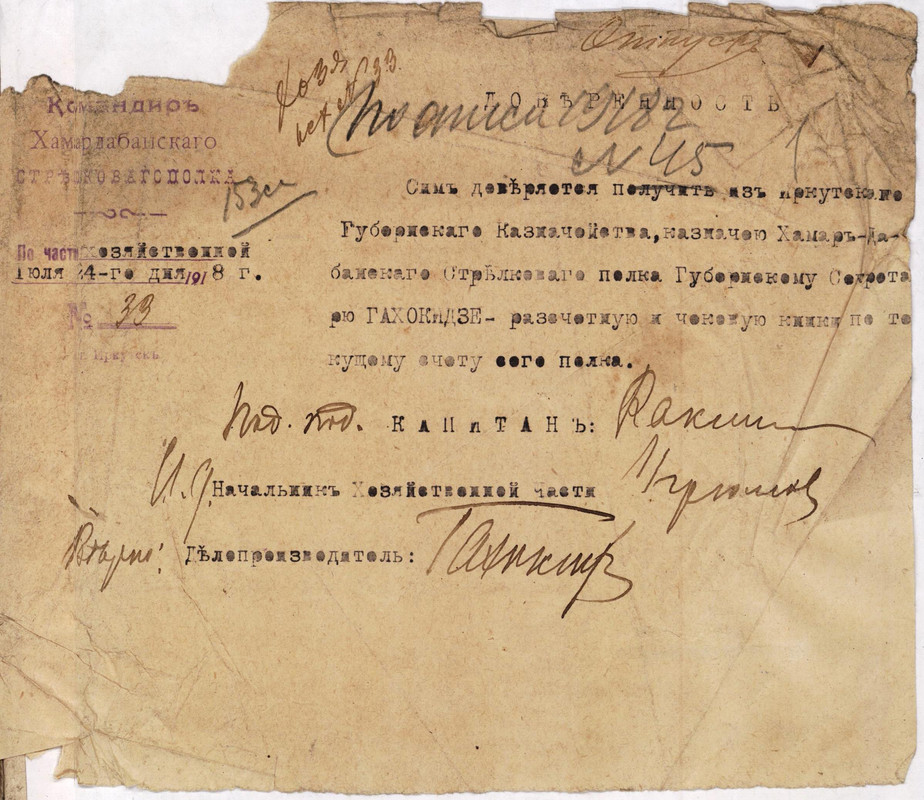 Отпускъ
ДОВѢРЕННОСТЬ
по описи 1918 г
№ 45
Командиръ
Хамардабанскаго
СТРѢЛКОВАГО ПОЛКА
По части хозяйственной
Iюля 24-го дня 1918 г.
№ 33
г. Иркутскъ
Симъ довѣряется получить изъ Иркутскаго
Губернскаго Казначейства, казначею Хамаръ-Да-
банскаго Стрѣлковаго полка Губернскому Секрета
рю ГАХОКИДЗЕ- разсчетную и чековую книжки по те
кущему счету сего полка.
Под. под. КАПИТАНЪ:
И.д. Начальникъ Хозяйственной части Угрюмов
Вѣрно: Дѣлопроизводитель: